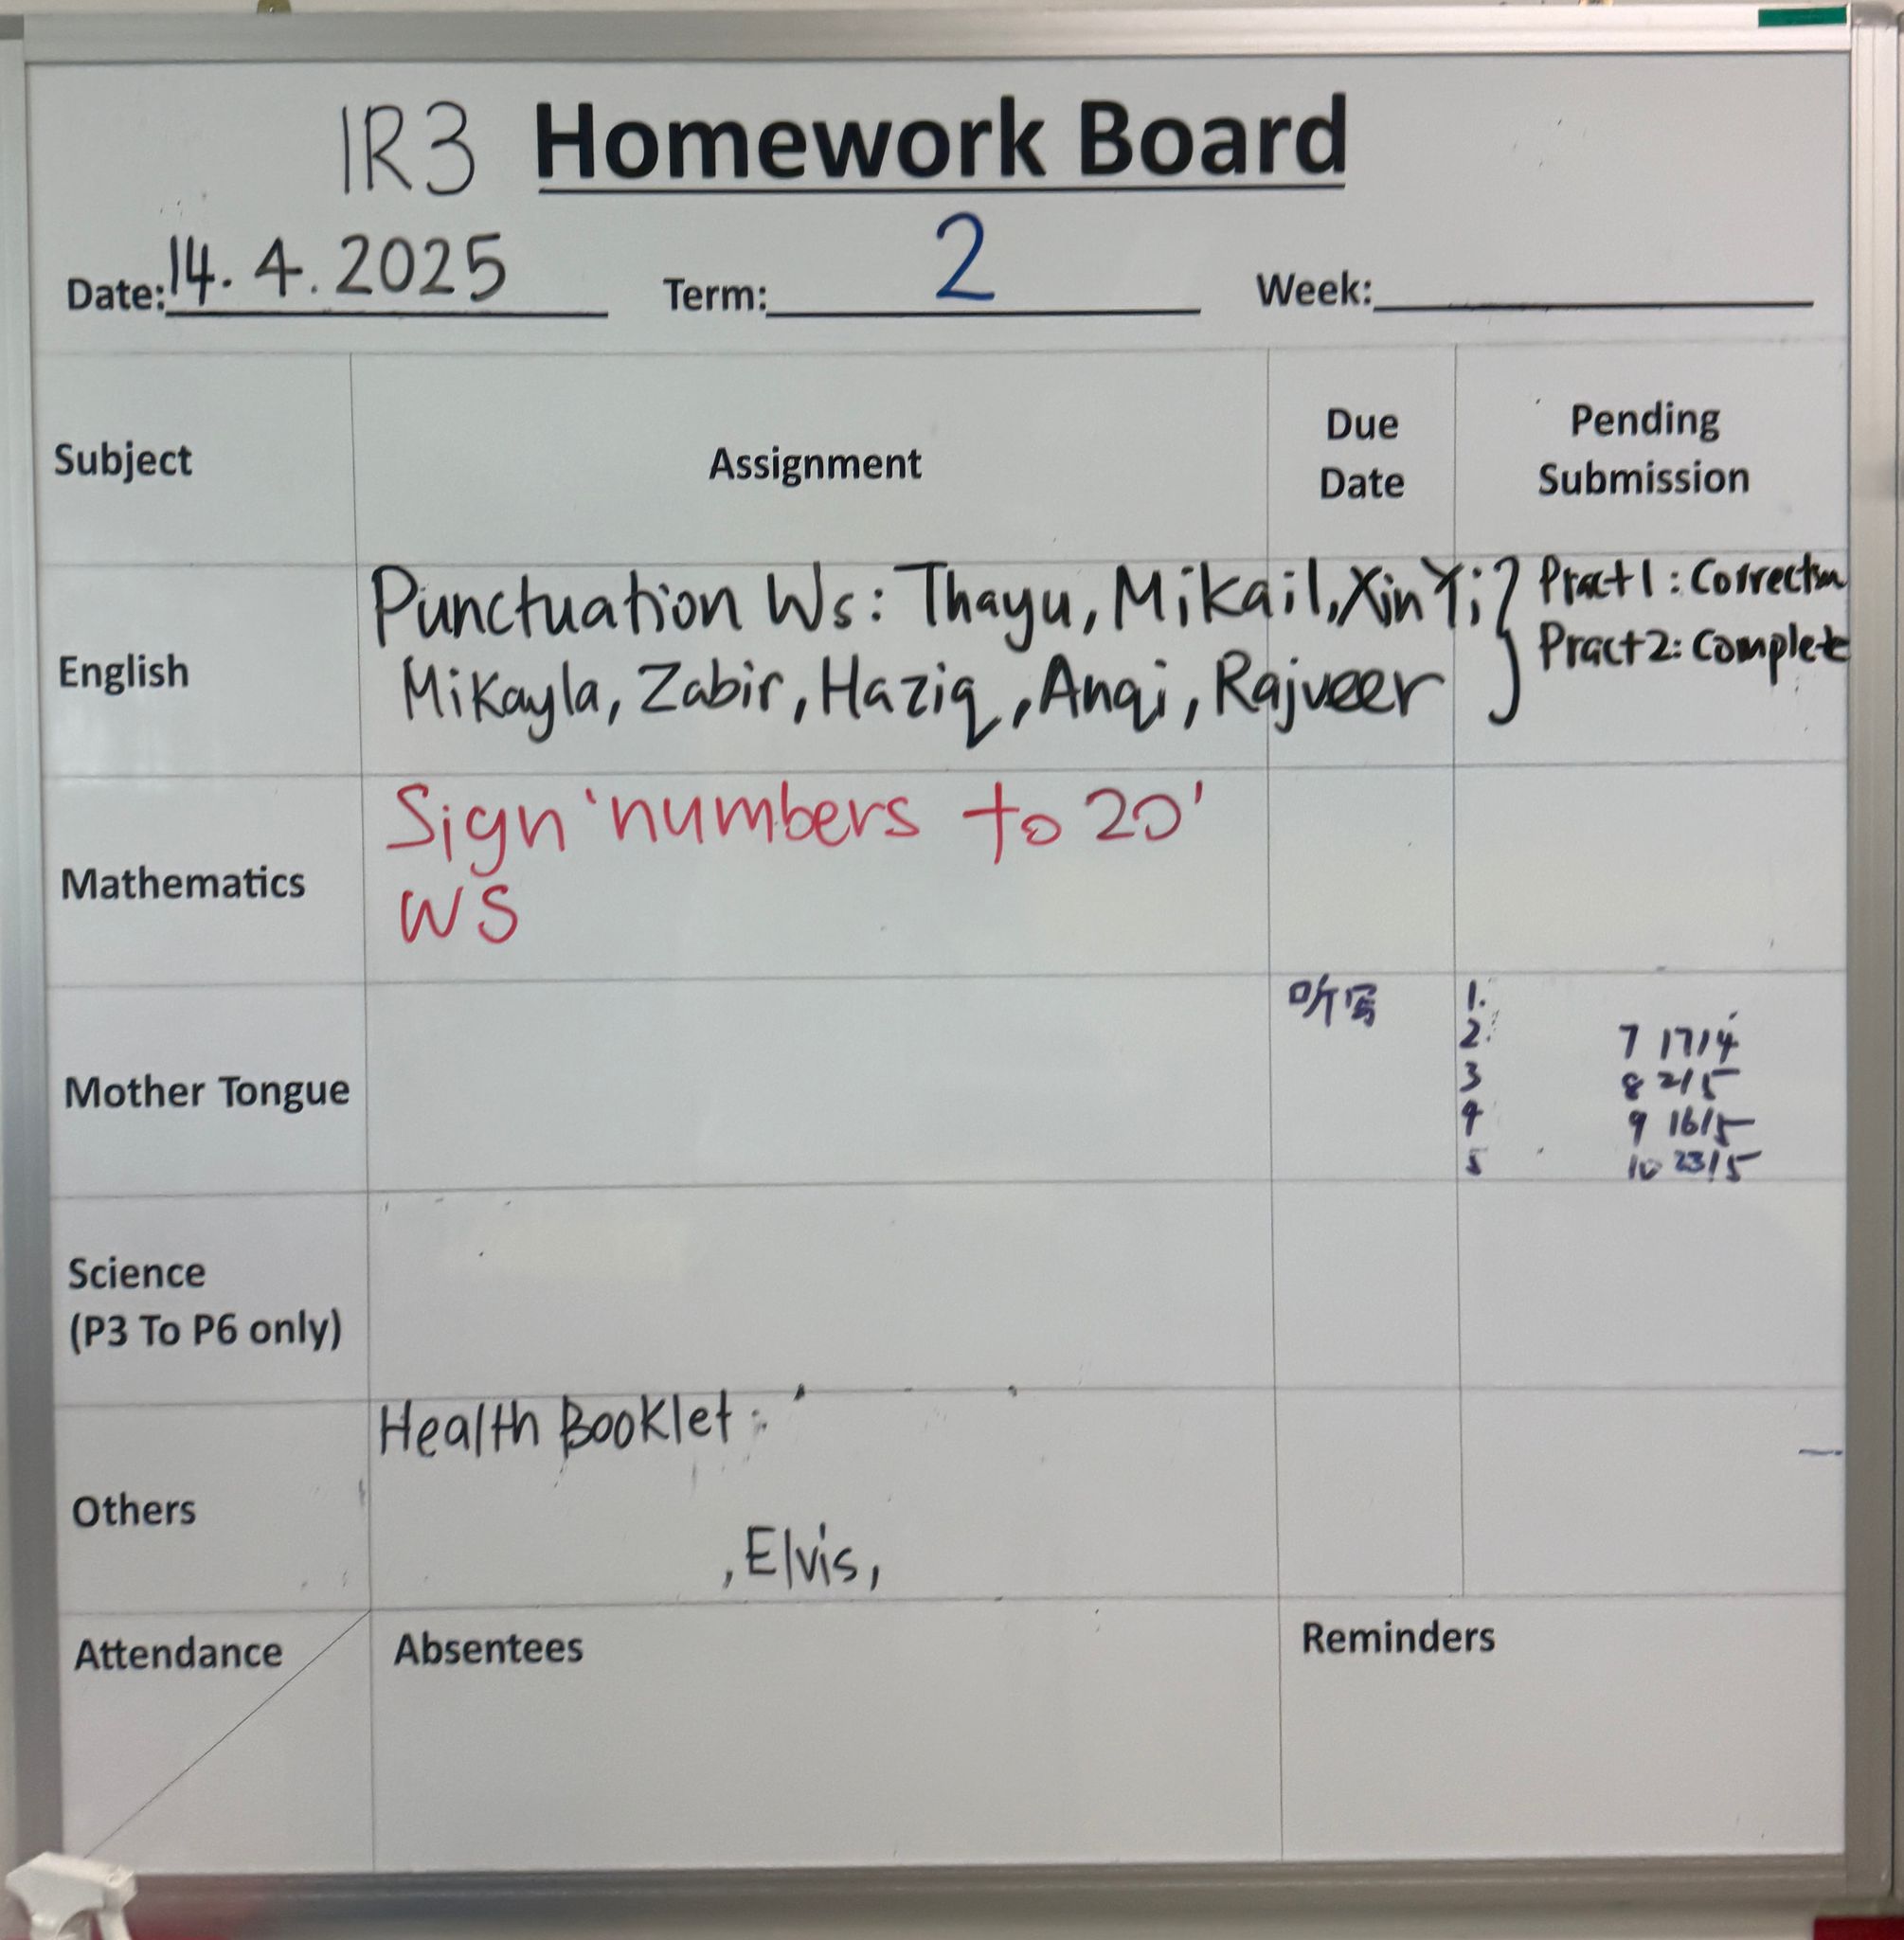 1R3 Homework Board
Date: 14.4.2025 Term: 2 Week:
Subject Assignment Due Date Pending Submission
English
Punctuation Ws: Thayu, Mikail, Xin Yi } Pract 1: Correction
Mikayla, Zabir, Haziq, Anqi, Rajveer Pract 2: Complete
Mathematics
Sign 'numbers to 20'
WS
Mother Tongue
听写 1.
2. 7 17/4
3 8 2/5
4 9 16/5
5 10 23/5
Science
(P3 To P6 only)
Others
Health Booklet:
, Elvis,
Attendance Absentees Reminders